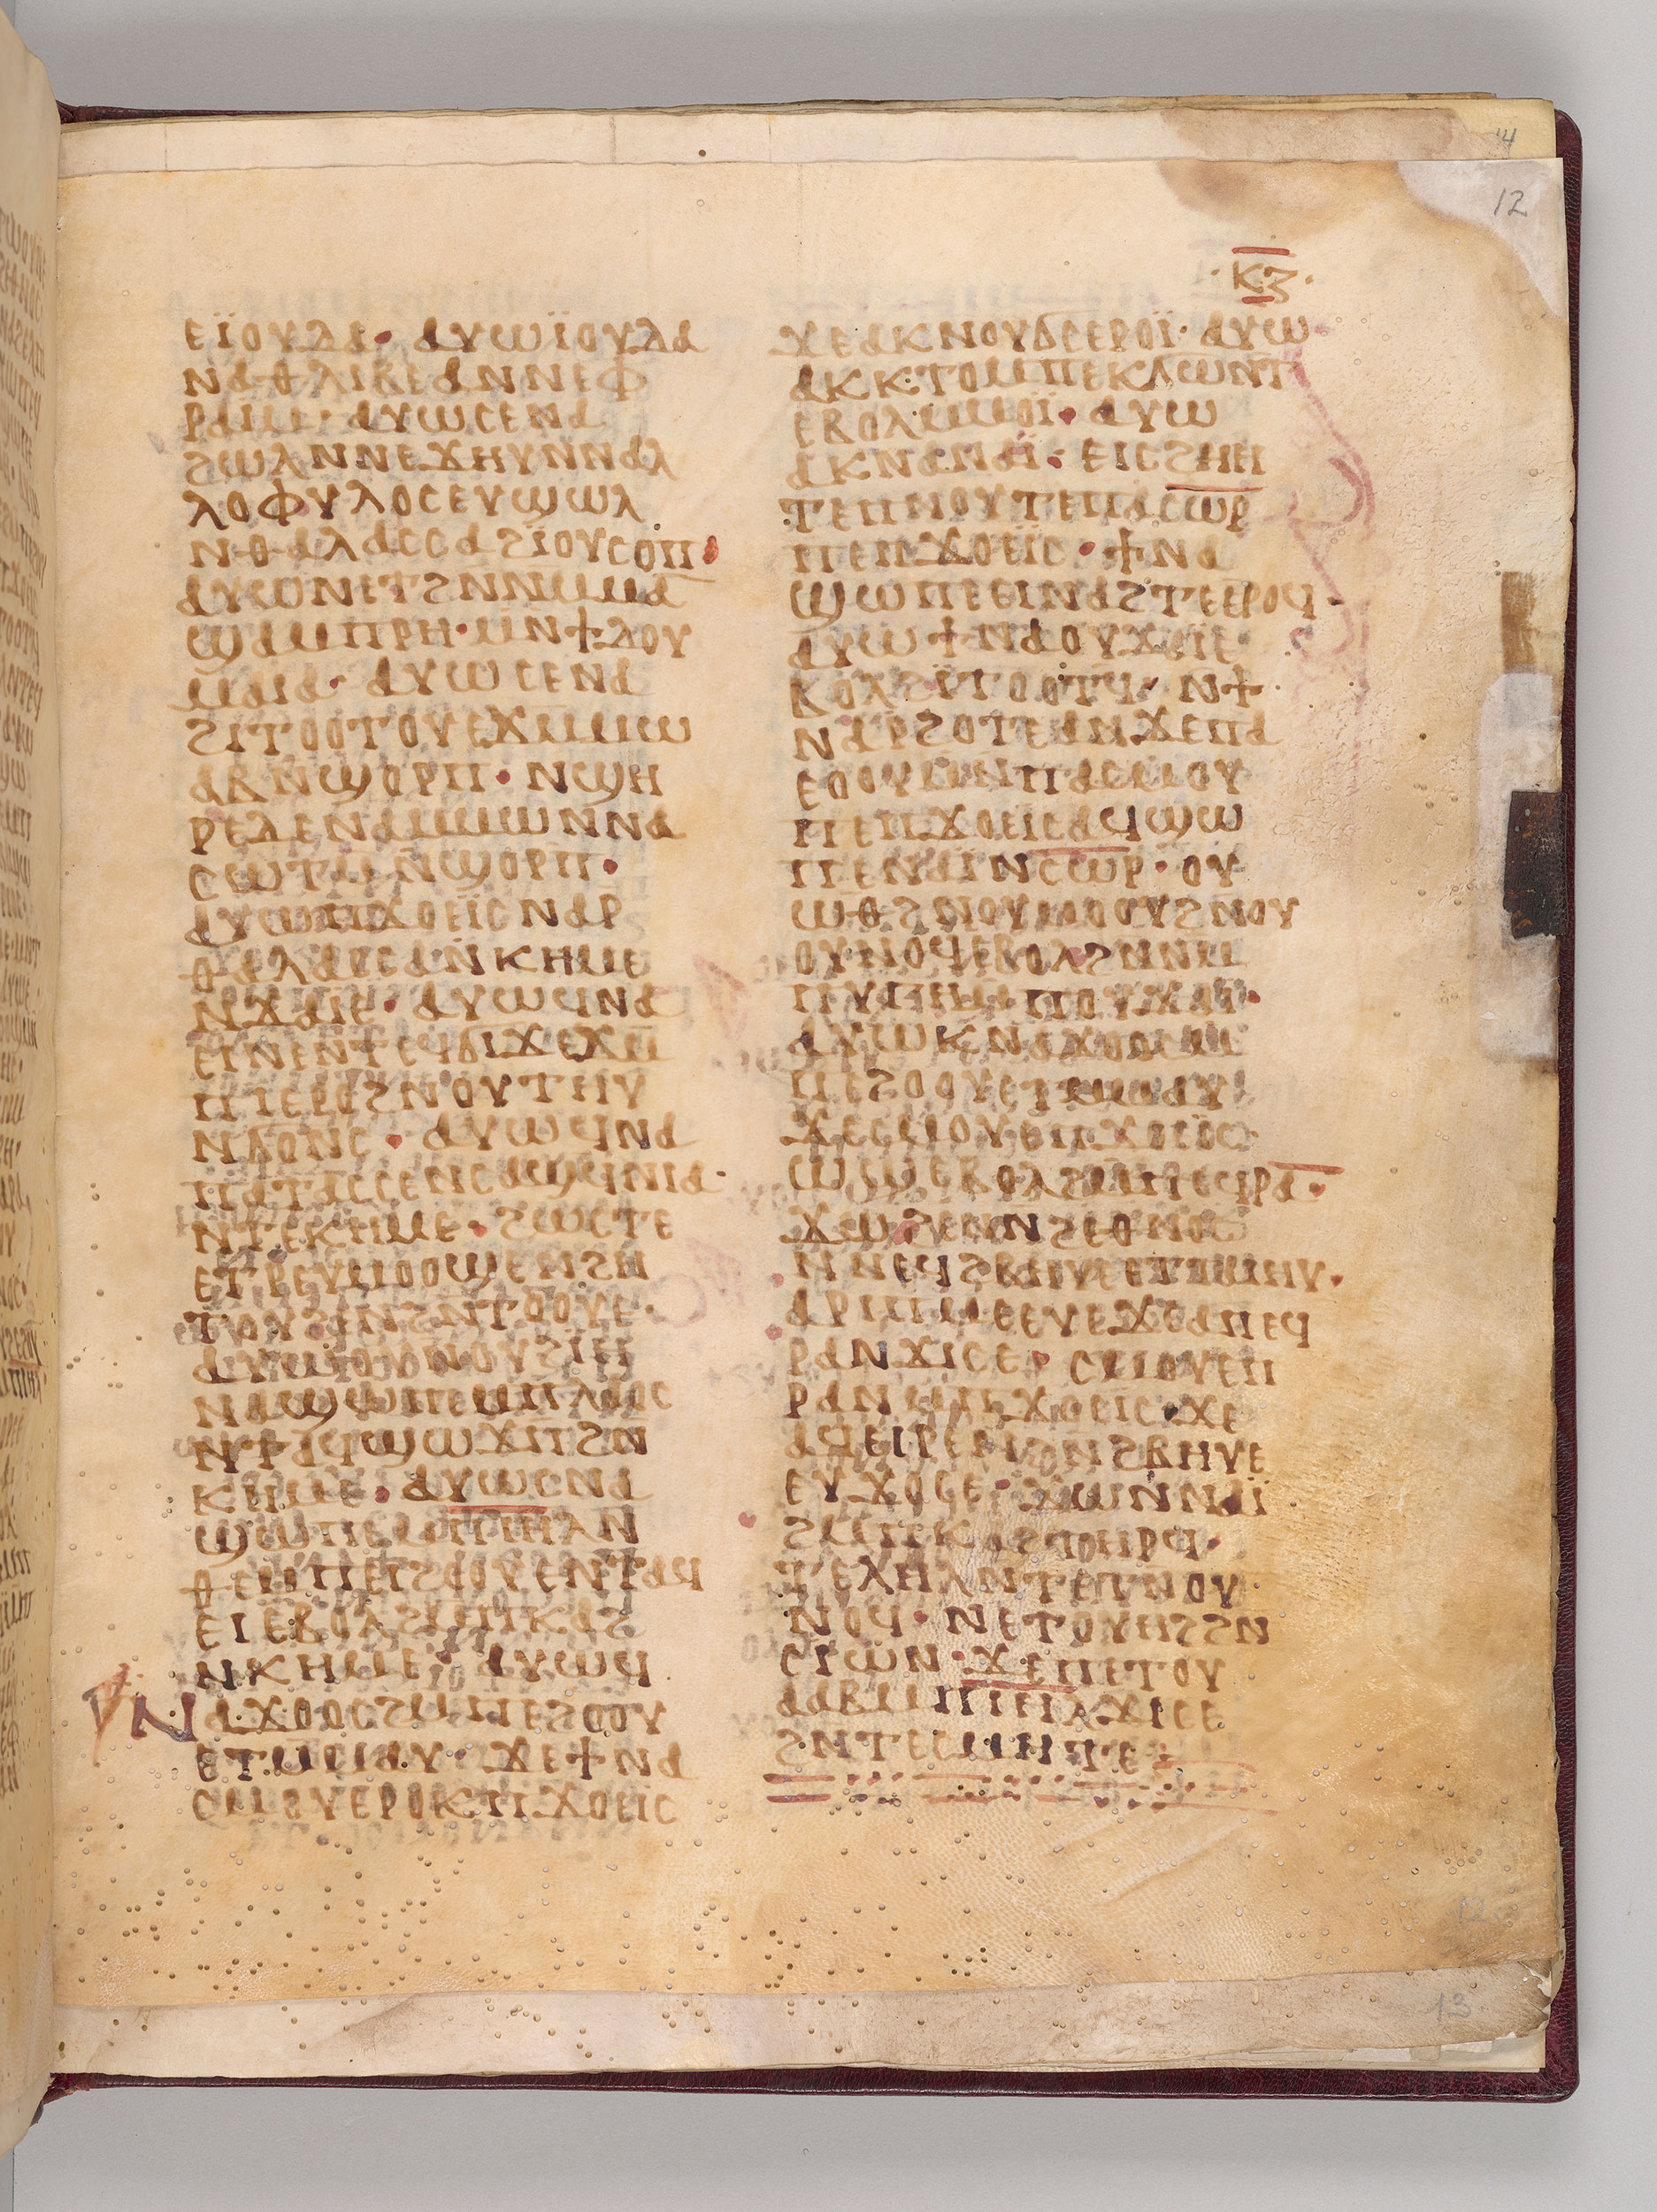 12
ⲕⲍ
ⲉⲓ̈ⲟⲩⲇⲁ· ⲁⲩⲱ ⲓ̈ⲟⲩⲇⲁ
ⲛⲁⲑⲗⲓⲃⲉ ⲁⲛ ⲛⲉⲫ
ⲣⲁⲓⲙ· ⲁⲩⲱ ⲥⲉⲛⲁ
ϩⲱⲗ ⲛⲛⲉϫⲏⲩ ⲛⲛⲁⲗ
ⲗⲟⲫⲩⲗⲟⲥ ⲉⲩϣⲱⲗ
ⲛⲑⲁⲗⲁⲥⲥⲁ ϩⲓ̈ⲟⲩⲥⲟⲡ·
ⲁⲩⲱ ⲛⲉⲧϩⲛ ⲙⲙⲁ
ϣⲁ ⲙⲡⲣⲏ· ⲙⲛ ϯⲇⲟⲩ
ⲙⲁⲓⲁ· ⲁⲩⲱ ⲥⲉⲛⲁ
ϩⲓⲧⲟⲟⲧⲟⲩ ⲉϫⲙ ⲙⲱ
ⲁⲃ ⲛϣⲟⲣⲡ· ⲛϣⲏ
ⲣⲉ ⲇⲉ ⲛⲁⲙⲙⲱⲛ ⲛⲁ
ⲥⲱⲧⲙ ⲛϣⲟⲣⲡ·
ⲁⲩⲱ ⲡϫⲟⲉⲓⲥ ⲛⲁⲣ
ⲑⲁⲗⲁⲥⲥⲁ ⲛⲕⲏⲙⲉ
ⲛϫⲁⲓⲉ· ⲁⲩⲱ ϥⲛⲁ
ⲉⲓⲛⲉ ⲛⲧⲉϥϭⲓϫ ⲉϫⲙ
ⲡⲓⲉⲣⲟ ϩⲛ ⲟⲩⲧⲏⲩ
ⲛϭⲟⲛⲥ· ⲁⲩⲱ ϥⲛⲁ
ⲡⲁⲧⲁⲥⲥⲉ ⲛⲥⲁϣϥ ⲛⲓⲁ
ⲛⲧⲉ ⲕⲏⲙⲉ· ϩⲱⲥⲧⲉ
ⲉⲧⲣⲉⲩⲙⲟⲟϣⲉ ⲛϩⲏ
ⲧⲟⲩ ϩⲛ ϩⲛⲧⲟⲟⲩⲉ·
ⲁⲩⲱ ⲟⲩⲛ ⲟⲩϩⲓⲏ
ⲛⲁϣⲱⲡⲉ ⲙⲡⲗⲁⲟⲥ
ⲛⲧⲁϥϣⲱϫⲡ ϩⲛ
ⲕⲏⲙⲉ· ⲁⲩⲱ ⲥⲛⲁ
ϣⲱⲡⲉ ⲙⲡⲓⲏⲗ ⲛ
ⲑⲉ ⲙⲡⲉϩⲟⲟⲩ ⲉⲛⲧⲁϥ
ⲉⲓ ⲉⲃⲟⲗ ϩⲙ ⲡⲕⲁϩ
ⲛⲕⲏⲙⲉ· ⲁⲩⲱ ϥ
ⲛⲁϫⲟⲟⲥ ϩⲙ ⲡⲉϩⲟⲟⲩ
ⲉⲧⲙⲙⲁⲩ· ϫⲉ ϯⲛⲁ
ⲥⲙⲟⲩ ⲉⲣⲟⲕ ⲡϫⲟⲉⲓⲥ
ϫⲉ ⲁⲕⲛⲟⲩϭⲥ ⲉⲣⲟⲓ̈· ⲁⲩⲱ
ⲁⲕⲕⲧⲟ ⲙⲡⲉⲕϭⲱⲛⲧ
ⲉⲃⲟⲗ ⲙⲙⲟⲓ̈· ⲁⲩⲱ
ⲁⲕⲛⲁ ⲛⲁⲓ̈· ⲉⲓⲥ ϩⲏⲏ
ⲧⲉ ⲡⲛⲟⲩⲧⲉ ⲡⲁⲥⲱⲣ
ⲡⲉ ⲡϫⲟⲉⲓⲥ· ϯⲛⲁ
ϣⲱⲡⲉ ⲉⲓⲛⲁϩⲧⲉ ⲉⲣⲟϥ·
ⲁⲩⲱ ϯⲛⲁⲟⲩϫⲁⲓ ⲉ
ⲃⲟⲗ ϩⲓ̈ⲧⲟⲟⲧϥ· ⲛϯ
ⲛⲁⲣϩⲟⲧⲉ ⲁⲛ ϫⲉ ⲡⲁ
ⲉⲟⲟⲩ ⲙⲛ ⲡⲁⲥⲙⲟⲩ
ⲡⲉ ⲡϫⲟⲉⲓⲥ ⲁϥϣⲱ
ⲡⲉ ⲛⲁⲓ ⲛⲥⲱⲣ· ⲟⲩ
ⲱⲑ ϩⲛ ⲟⲩⲙⲟⲟⲩ ϩⲛ ⲟⲩ
ⲟⲩⲛⲟϥ ⲉⲃⲟⲗ ϩⲛ ⲙ
ⲡⲩⲅⲏ ⲙⲡⲟⲩϫⲁⲓ·
ⲁⲩⲱ ⲕⲛⲁϫⲟⲟⲥ ϩⲙ
ⲡⲉϩⲟⲟⲩ ⲉⲧⲙⲙⲁⲩ
ϫⲉ ⲥⲙⲟⲩ ⲉⲡϫⲟⲉⲓⲥ·
ⲱϣ ⲉⲃⲟⲗ ϩⲙ ⲡⲉϥⲣⲁ·
ϫⲱ ϩⲛ ⲛϩⲉⲑⲛⲟⲥ
ⲛⲛⲉϥϩⲃⲏⲩⲉ ⲉⲧⲧⲁⲓⲏⲩ·
ⲁⲣⲓⲡⲙⲉⲉⲩⲉ ϫⲉ ⲁⲡⲉϥ
ⲣⲁⲛ ϫⲓⲥⲉ· ⲥⲙⲟⲩ ⲉⲡ
ⲣⲁⲛ ⲙⲡϫⲟⲉⲓⲥ ϫⲉ
ⲁϥⲉⲓⲣⲉ ⲛϩⲛϩⲃⲏⲩⲉ
ⲉⲩϫⲟⲥⲉ· ϫⲱ ⲛⲛⲁⲓ̈
ϩⲙ ⲡⲕⲁϩ ⲧⲏⲣϥ·
ⲧⲉⲗⲏⲗ ⲛⲧⲉⲧⲛⲟⲩ
ⲛⲟϥ· ⲛⲉⲧⲟⲩⲏϩ ϩⲛ
ⲥⲓⲱⲛ· ϫⲉ ⲡⲉⲧⲟⲩ
ⲁⲁⲃ ⲙⲡⲓⲏⲗ ϫⲓⲥⲉ
ϩⲛ ⲧⲉⲥⲙⲏⲧⲉ
13